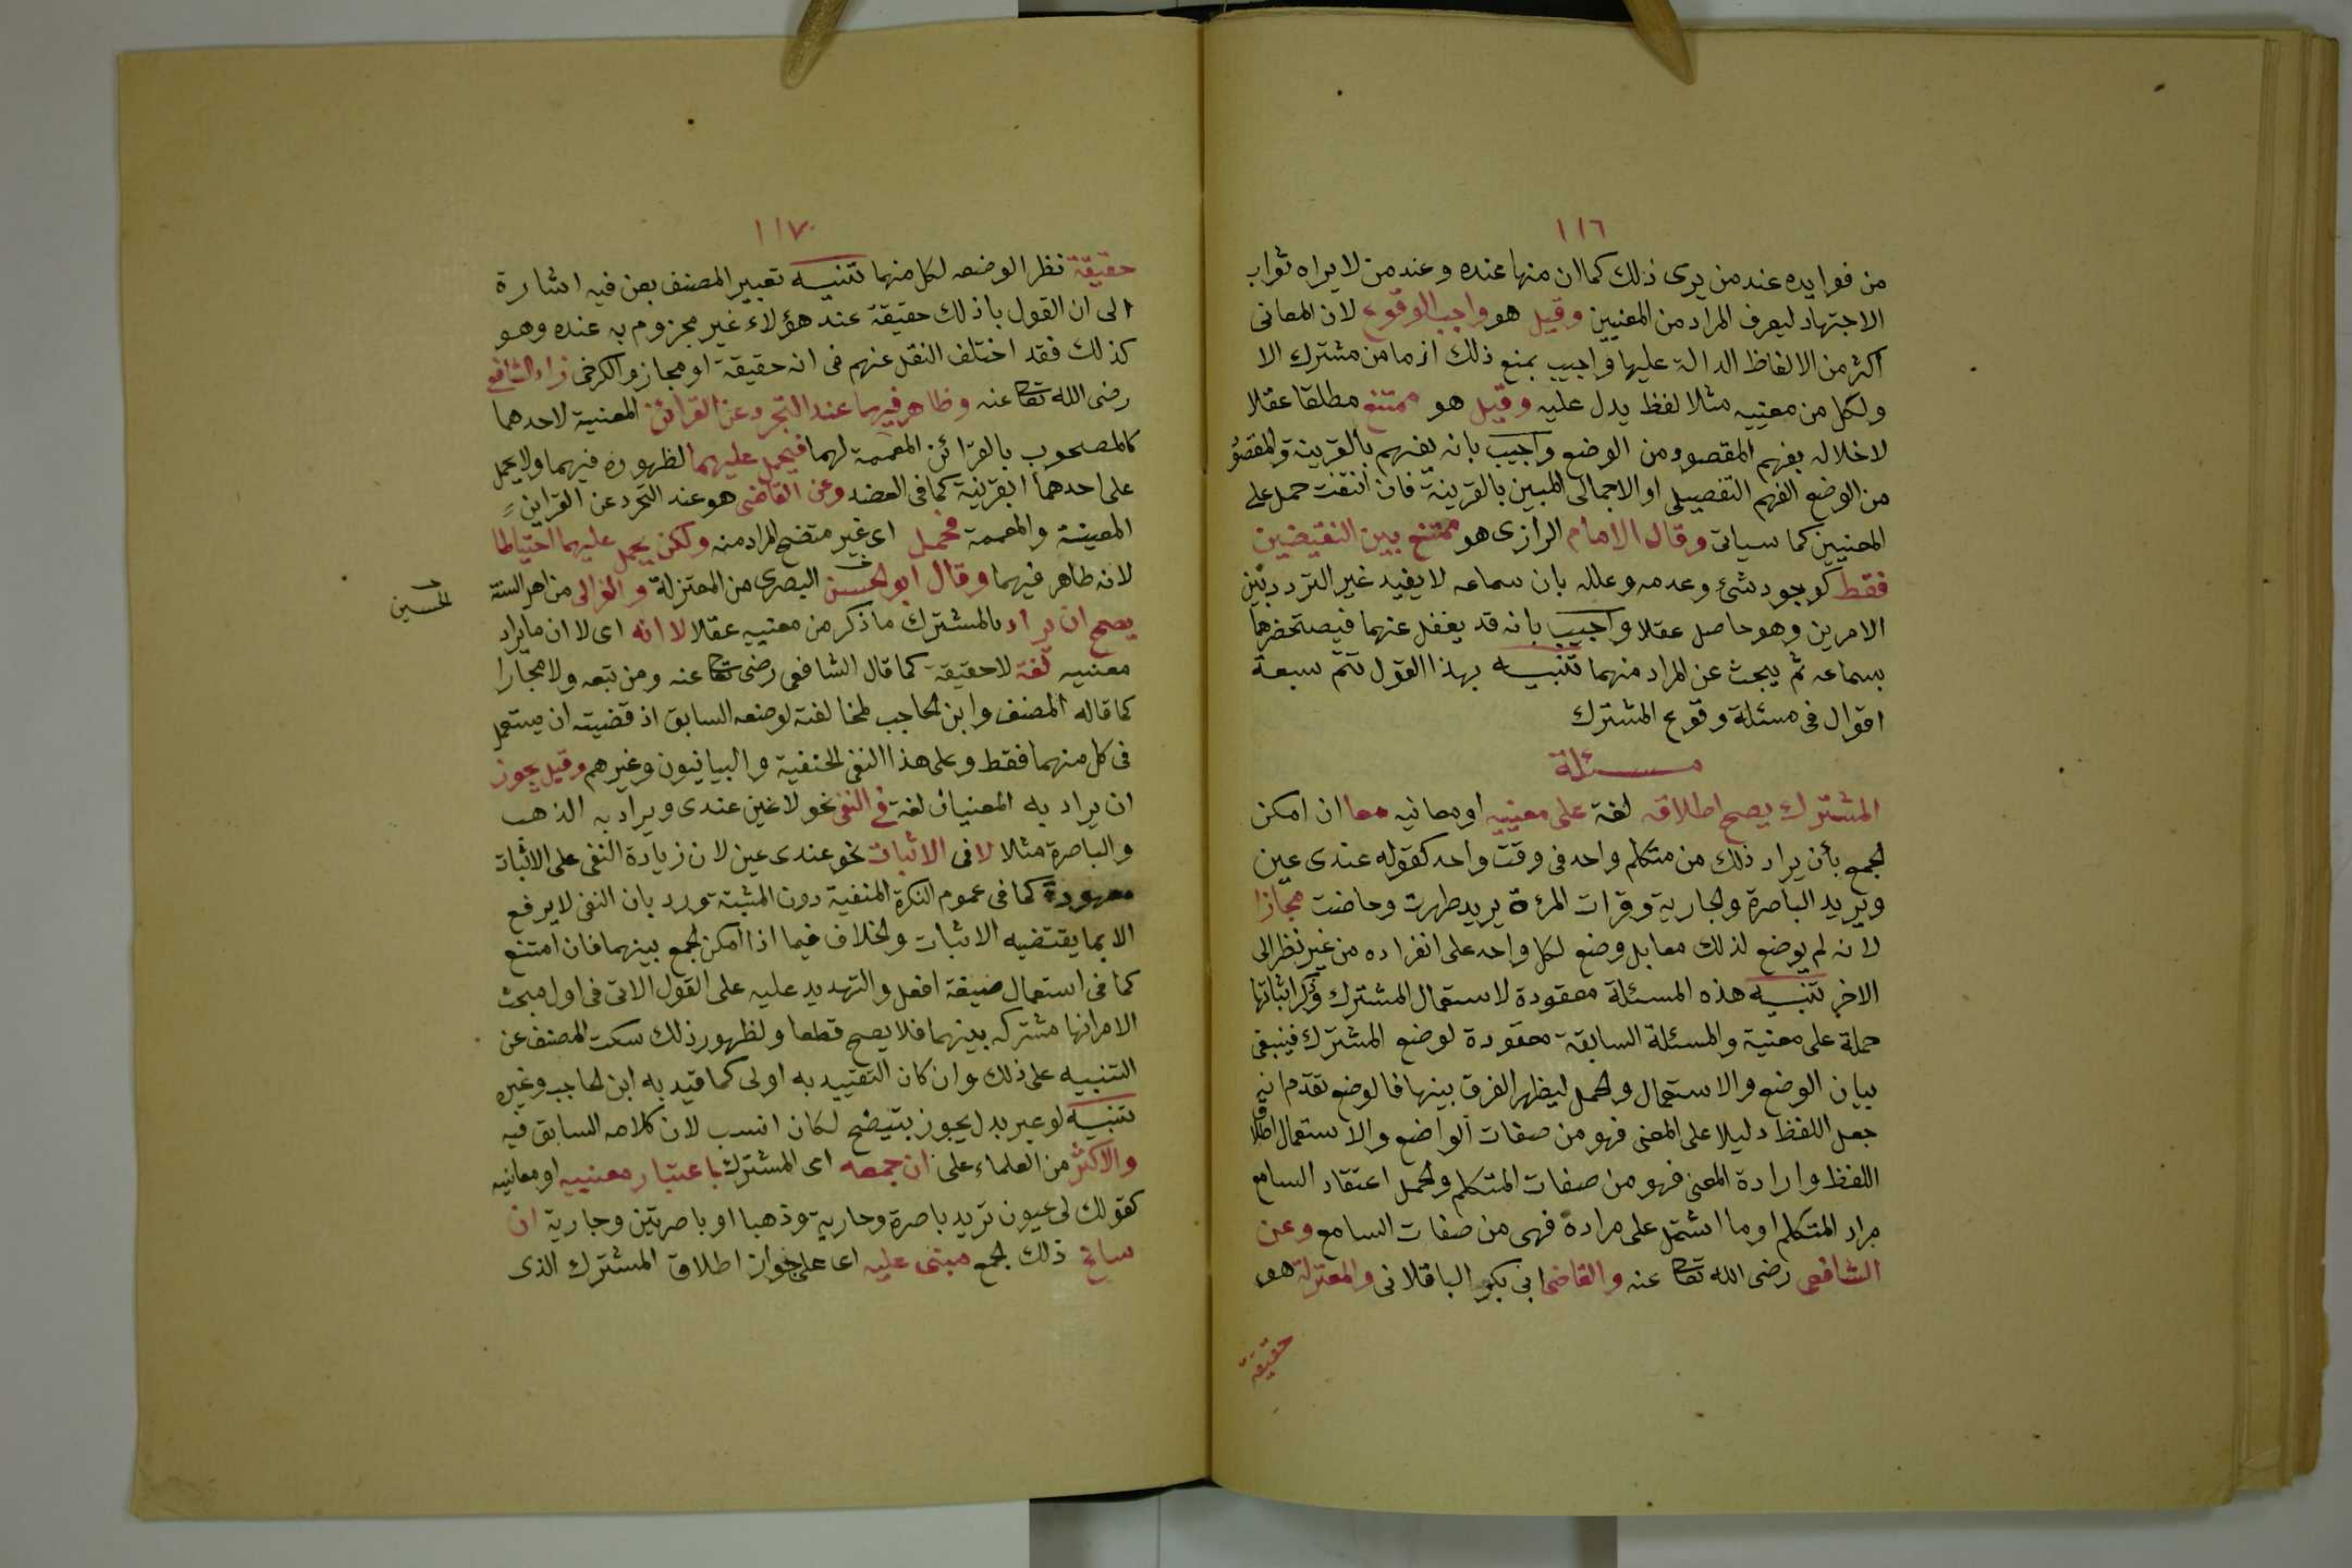 ١١٦
من فوايده عند من يرى ذلك كما ان منها عنده وعند من لا يراه ثواب
الاجتهاد ليعرف المراد من المعنيين وقيل هو واجب الوقوع لان المعانى
اكثر من الالفاظ الدالة عليها واجيب بمنع ذلك اذ ما من مشترك الا
ولكل من معنييه مثلا لفظ يدل عليه وقيل هو ممتنع مطلقا عقلا
لاخلاله بفهم المقصود من الوضع واجيب بانه يفهم بالقرينة والمقصود
من الوضع الفهم التفصيلى او الاجمالى المبين بالقرينة فان انتفت حمل على
المعنيين كما سياتى وقال الامام الرازى هو ممتنع بين النقيضين
فقط كوجود شئ وعدمه وعلله بان سماعه لا يفيد غير التردد بين
الامرين وهو حاصل عقلا واجيب بانه قد يغفل عنهما فيستحضرهما
بسماعه ثم يبحث عن المراد منهما تنبيه بهذا القول تتم سبعة
اقوال فى مسئلة وقوع المشترك
مسئلة
المشترك يصح اطلاقه لغة على معنييه او معانيه معا ان امكن
الجمع بأن يراد ذلك من متكلم واحد فى وقت واحد كقوله عندى عين
وتريد الباصرة والجارية وقرات المرءة يريد طهرت وحاضت مجازا
لانه لم يوضع لذلك معا بل وضع لكل واحد على انفراده من غير نظر الى
الاخر تنبيه هذه المسئلة معقودة لاستعمال المشترك وذكر اثباتها
حملة على معنية والمسئلة السابقة معقودة لوضع المشترك فينبغى
بيان الوضع والاستعمال والحمل ليظهر الفرق بينها فالوضع تقدم انه
جعل اللفظ دليلا على المعنى فهو من صفات الواضع والاستعمال اطلاق
اللفظ وارادة المعنى فهو من صفات المتكلم والحمل اعتقاد السامع
مراد المتكلم او ما اشتمل على مراده فهى من صفات السامع وعن
الشافعى رضى الله تعا عنه والقاضى ابى بكر الباقلانى والمعتزلة هو
حقيقة
١١٧
حقيقة نظرا لوضعه لكل منهما تنبيه تعبير المصنف بعن فيه اشارة
الى ان القول باذلك حقيقة عند هؤلاء غير مجزوم به عنده وهو
كذلك فقد اختلف النقل عنهم فى انه حقيقة او مجاز والكرخى زاد الشافعى
رضى الله تعا عنه وظاهر فيهما عند التجرد عن القرائن المعنية لاحدهما
كالمصحوب بالقرائن المعممة لهما فيحمل عليهما لظهوره فيهما ولا يحمل
على احدهما الا بقرينة كما فى العضد وعن القاضى هو عند التجرد عن القراين
المعينة والمعممة مجمل اى غير متضح المراد منه ولكن يحمل عليهما احتياطا
لانه ظاهر فيهما وقال ابو الحسن البصرى من المعتزلة والغزالى من اهل السنة
الحسين
يصح ان يراد بالمشترك ما ذكر من معنييه عقلا لا انه اى لا ان ما يراد
معنييه لغة لا حقيقة كما قال الشافعى رضى تعا عنه ومن تبعه ولا مجازا
كما قاله المصنف وابن الحاجب لمخالفته لوضعه السابق اذ قضيته ان يستعمل
فى كل منهما فقط وعلى هذا النفى الحنفية والبيانيون وغيرهم وقيل يجوز
ان يراد به المعنيان لغة فى النفى نحو لا عين عندى ويراد به الذهب
والباصرة مثلا لا فى الاثبات نحو عندى عين لان زيادة النفى على الاثبات
معهودة كما فى عموم النكرة المنفية دون المثبتة ورد بان النفى لا يرفع
الا بما يقتضيه الاثبات والخلاف فيما اذا امكن الجمع بينهما فان امتنع
كما فى استعمال صيغة افعل والتهديد عليه على القول الاتى فى اول مبحث
الامر انها مشتركه بينهما فلا يصح قطعا ولظهور ذلك سكت المصنف عن
التنبيه على ذلك وان كان التقييد به اولى كما قيد به ابن الحاجب وغيره
تنبيه لو عبر بدل يجوز بتيضح لكان انسب لان كلامه السابق فيه
والاكثر من العلماء على ان جمعه اى المشترك باعتبار معنييه او معانيه
كقولك لى عيون تريد باصرة وجارية وذهبا او باصرتين وجارية ان
ساغ ذلك الجمع مبنى عليه اى على جواز اطلاق المشترك الذى